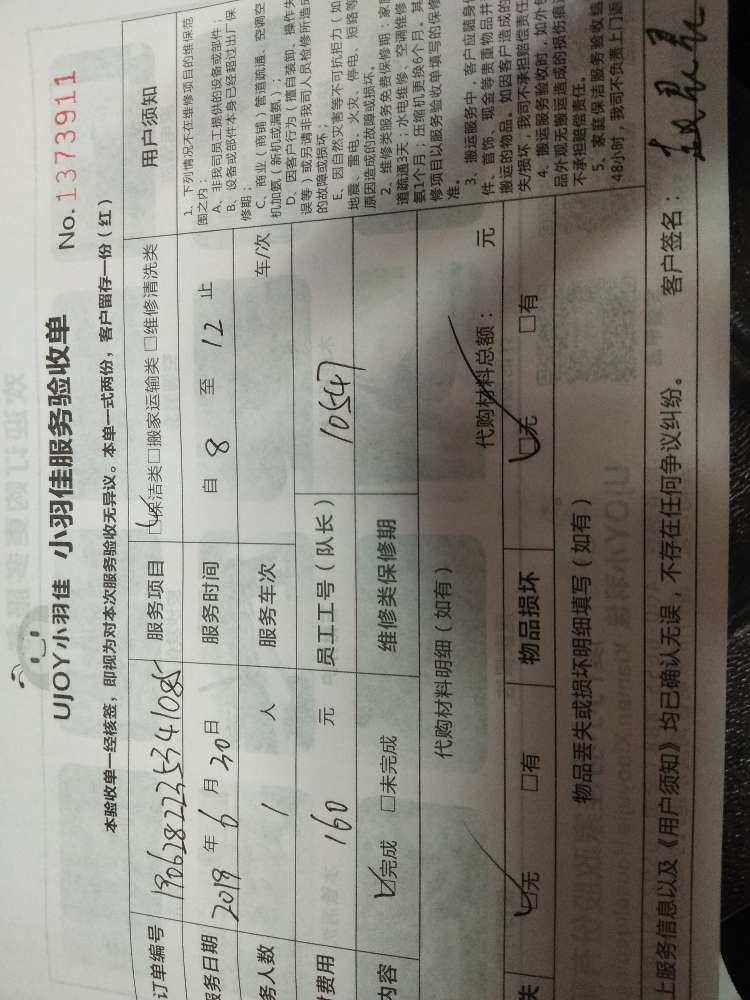 UJOY小羽佳 小羽佳服务验收单
No. 1373911
本验收单一经核签，即视为对本次服务验收无异议。本单一式两份，客户留存一份（红）
订单编号 1906282235341085 服务项目 ☑保洁类□搬家运输类□维修清洗类
服务日期 2019 年 6 月 30 日 服务时间 自 8 至 12 止
务人数 1 人 服务车次 车/次
费用 160 元 员工工号（队长） 10547
内容 ☑完成 □未完成 维修类保修期
代购材料明细（如有） 代购材料总额： 元
失 ☑无 □有 物品损坏 ☑无 □有
物品丢失或损坏明细填写（如有）
上服务信息以及《用户须知》均已确认无误，不存在任何争议纠纷。 客户签名：
用户须知
1. 下列情况不在维修项目的维保范
围之内：
A、非我司员工提供的设备或部件；
B、设备或部件本身已经超过出厂保
修期；
C、商业（商铺）管道疏通、空调空
机加氨（新机或漏氨）；
D、因客户行为（擅自装卸、操作失
误等）或另请非我司人员检修所造成
的故障或损坏；
E、因自然灾害等不可抗拒力（如
地震、雷电、火灾、停电、短路等
原因造成的故障或损坏。
2、维修类服务免费保修期：家
道疏通3天；水电维修、空调维修
氨1个月；压缩机更换6个月。其
修项目以服务验收单填写的保修
准。
3、搬运服务中，客户应随身
件、首饰、现金等贵重物品并
搬运的物品。如因客户造成的
失/损坏，我司不承担赔偿责任
4、搬运服务验收时，如外包
品外观无搬运造成的损伤痕
不承担赔偿责任。
5、家庭保洁服务验收
48小时，我司不负责上门返